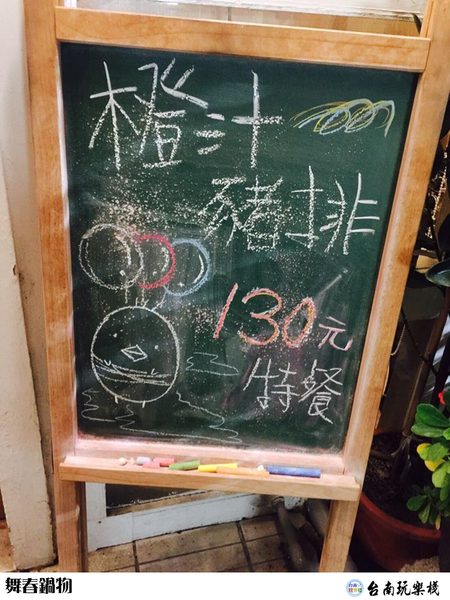 橙汁
豬排
130元
特餐
舞春鍋物
台南玩樂棧